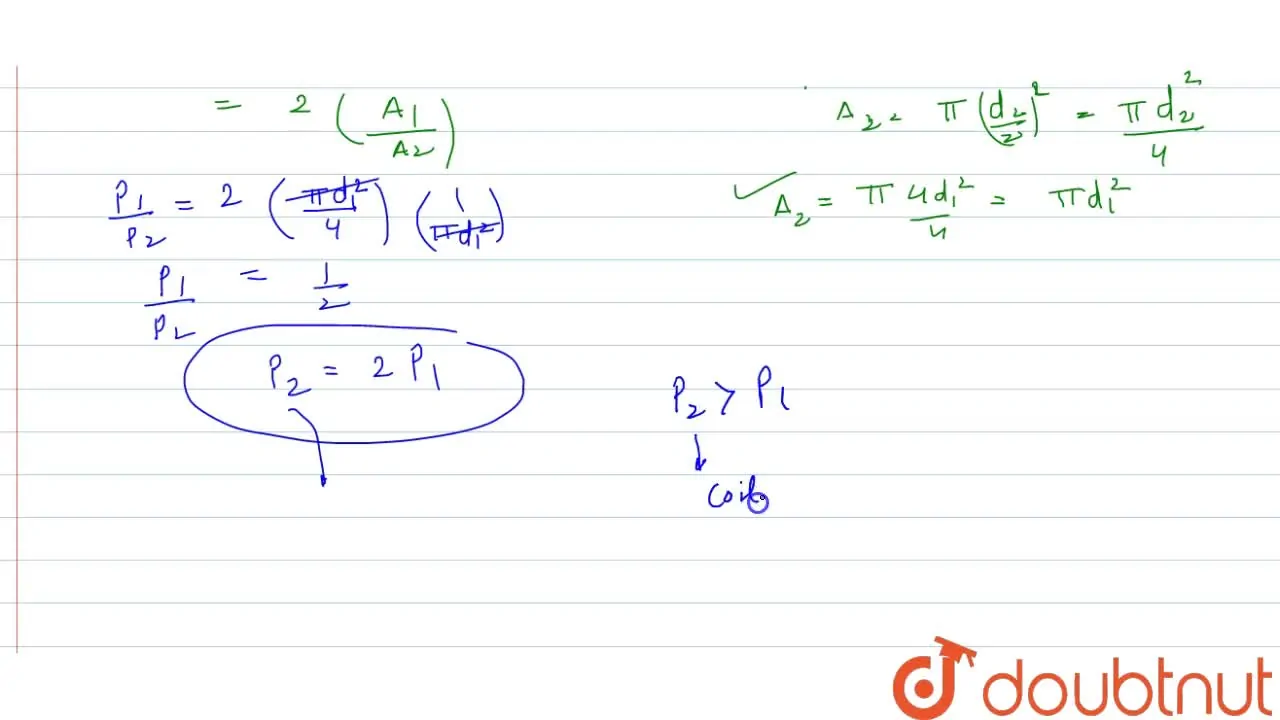 = 2 (A1/A2)
P1/P2 = 2 (πd1²/4) (1/πd1²)
P1/P2 = 1/2
P2 = 2 P1
A2 = π (d2/2)² = πd2²/4
✓ A2 = π 4d1²/4 = πd1²
P2 > P1
↓
coil
doubtnut